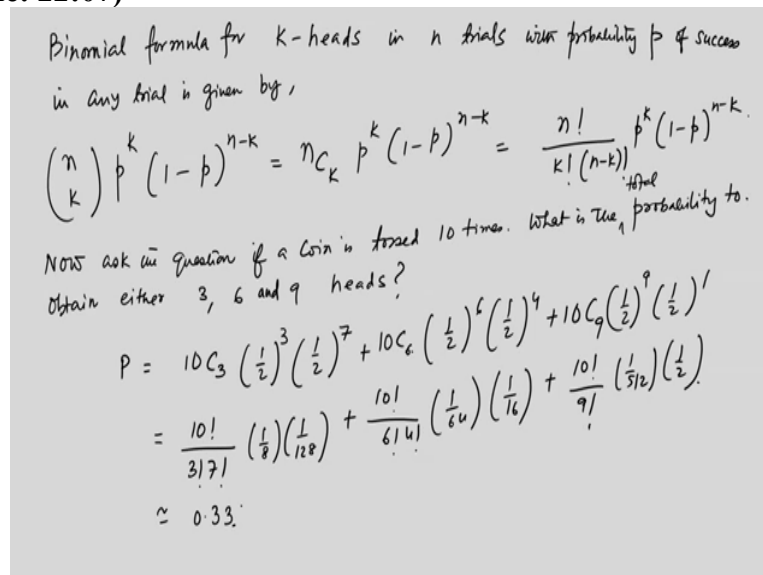 Binomial formula for K-heads in n trials with probability p of success
in any trial is given by,
(n K) p^K (1-p)^{n-K} = n_{C_K} p^K (1-p)^{n-K} = n! / K! (n-K)! p^K (1-p)^{n-K}.
Now ask the question if a coin is tossed 10 times. What is the total probability to.
Obtain either 3, 6 and 9 heads?
P = 10C_3 (1/2)^3 (1/2)^7 + 10C_6 (1/2)^6 (1/2)^4 + 10C_9 (1/2)^9 (1/2)^1
= 10! / 3! 7! (1/8) (1/128) + 10! / 6! 4! (1/64) (1/16) + 10! / 9! (1/512) (1/2)
≃ 0.33.